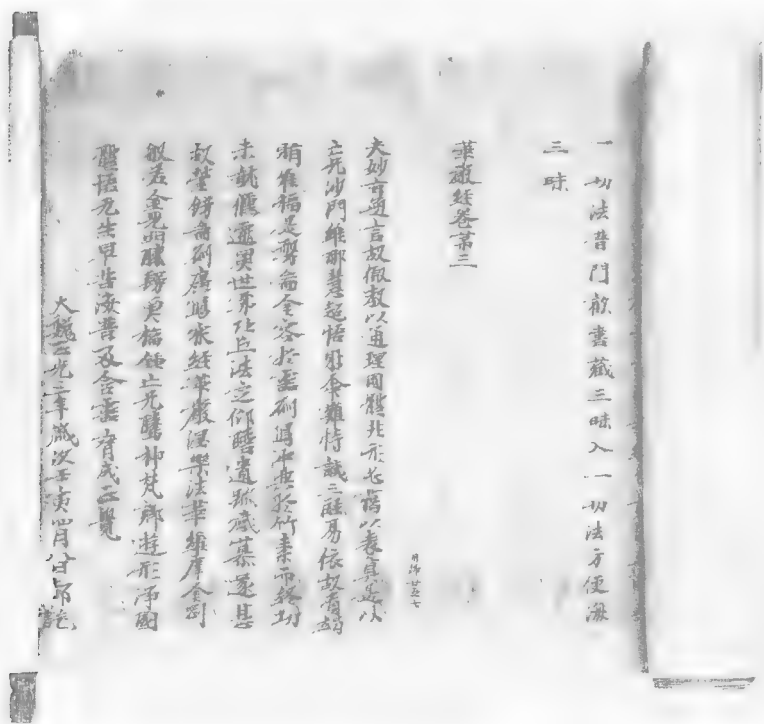 一切法普門歡喜藏三昧入一切法方便海
三昧
華嚴經卷第三
用帋廿五七
夫妙旨無言故假教以通理圓體非形必藉以表真是以
亡兄沙門維那慧超悟財命難恃識三能易依故資竭
雅福是剪崙金容於靈剎寫沖典於竹素而終功
未就倏遷異世弟比丘法定仰瞻遺跡感慕遂甚
故瑩飾圖剎廣寫眾經華嚴涅槃法華維摩金剛
般若金光明勝鬘冀福鍾亡兄騰神梵鄉遊形淨國
體悟無生早苦海普及含靈齊成正覺
大魏正光三年歲次壬寅四月八日都訖